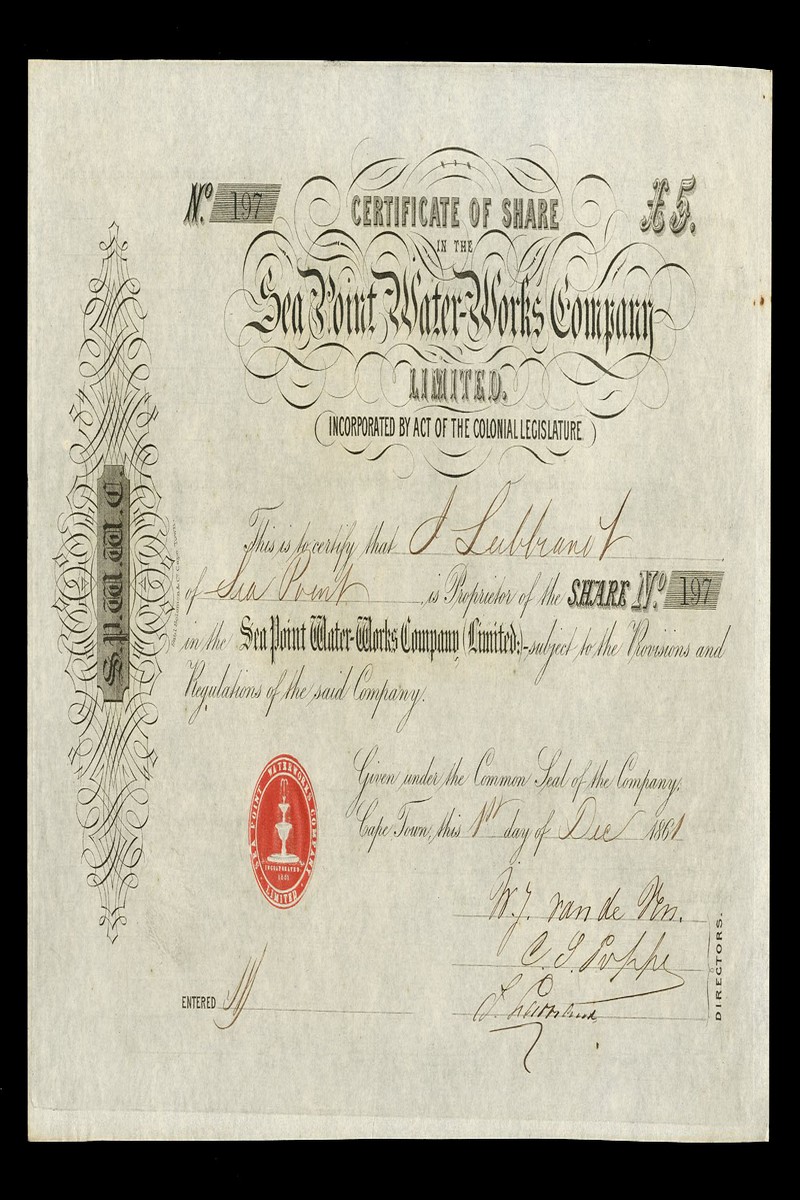 No. 197
£5.
CERTIFICATE OF SHARE
IN THE
Sea Point Water-Works Company
LIMITED.
(INCORPORATED BY ACT OF THE COLONIAL LEGISLATURE)
S.P.W.W.C.
This is to certify that J Leibbrandt
of Sea Point is Proprietor of the SHARE No. 197
in the Sea Point Water-Works Company (Limited:)-subject to the Provisions and
Regulations of the said Company.
Given under the Common Seal of the Company;
Cape Town, this 1st day of Dec 1861
SEA POINT WATERWORKS COMPANY
INCORPORATED
LIMITED
W. J. van de Ven.
C. S. Poppe
DIRECTORS.
ENTERED